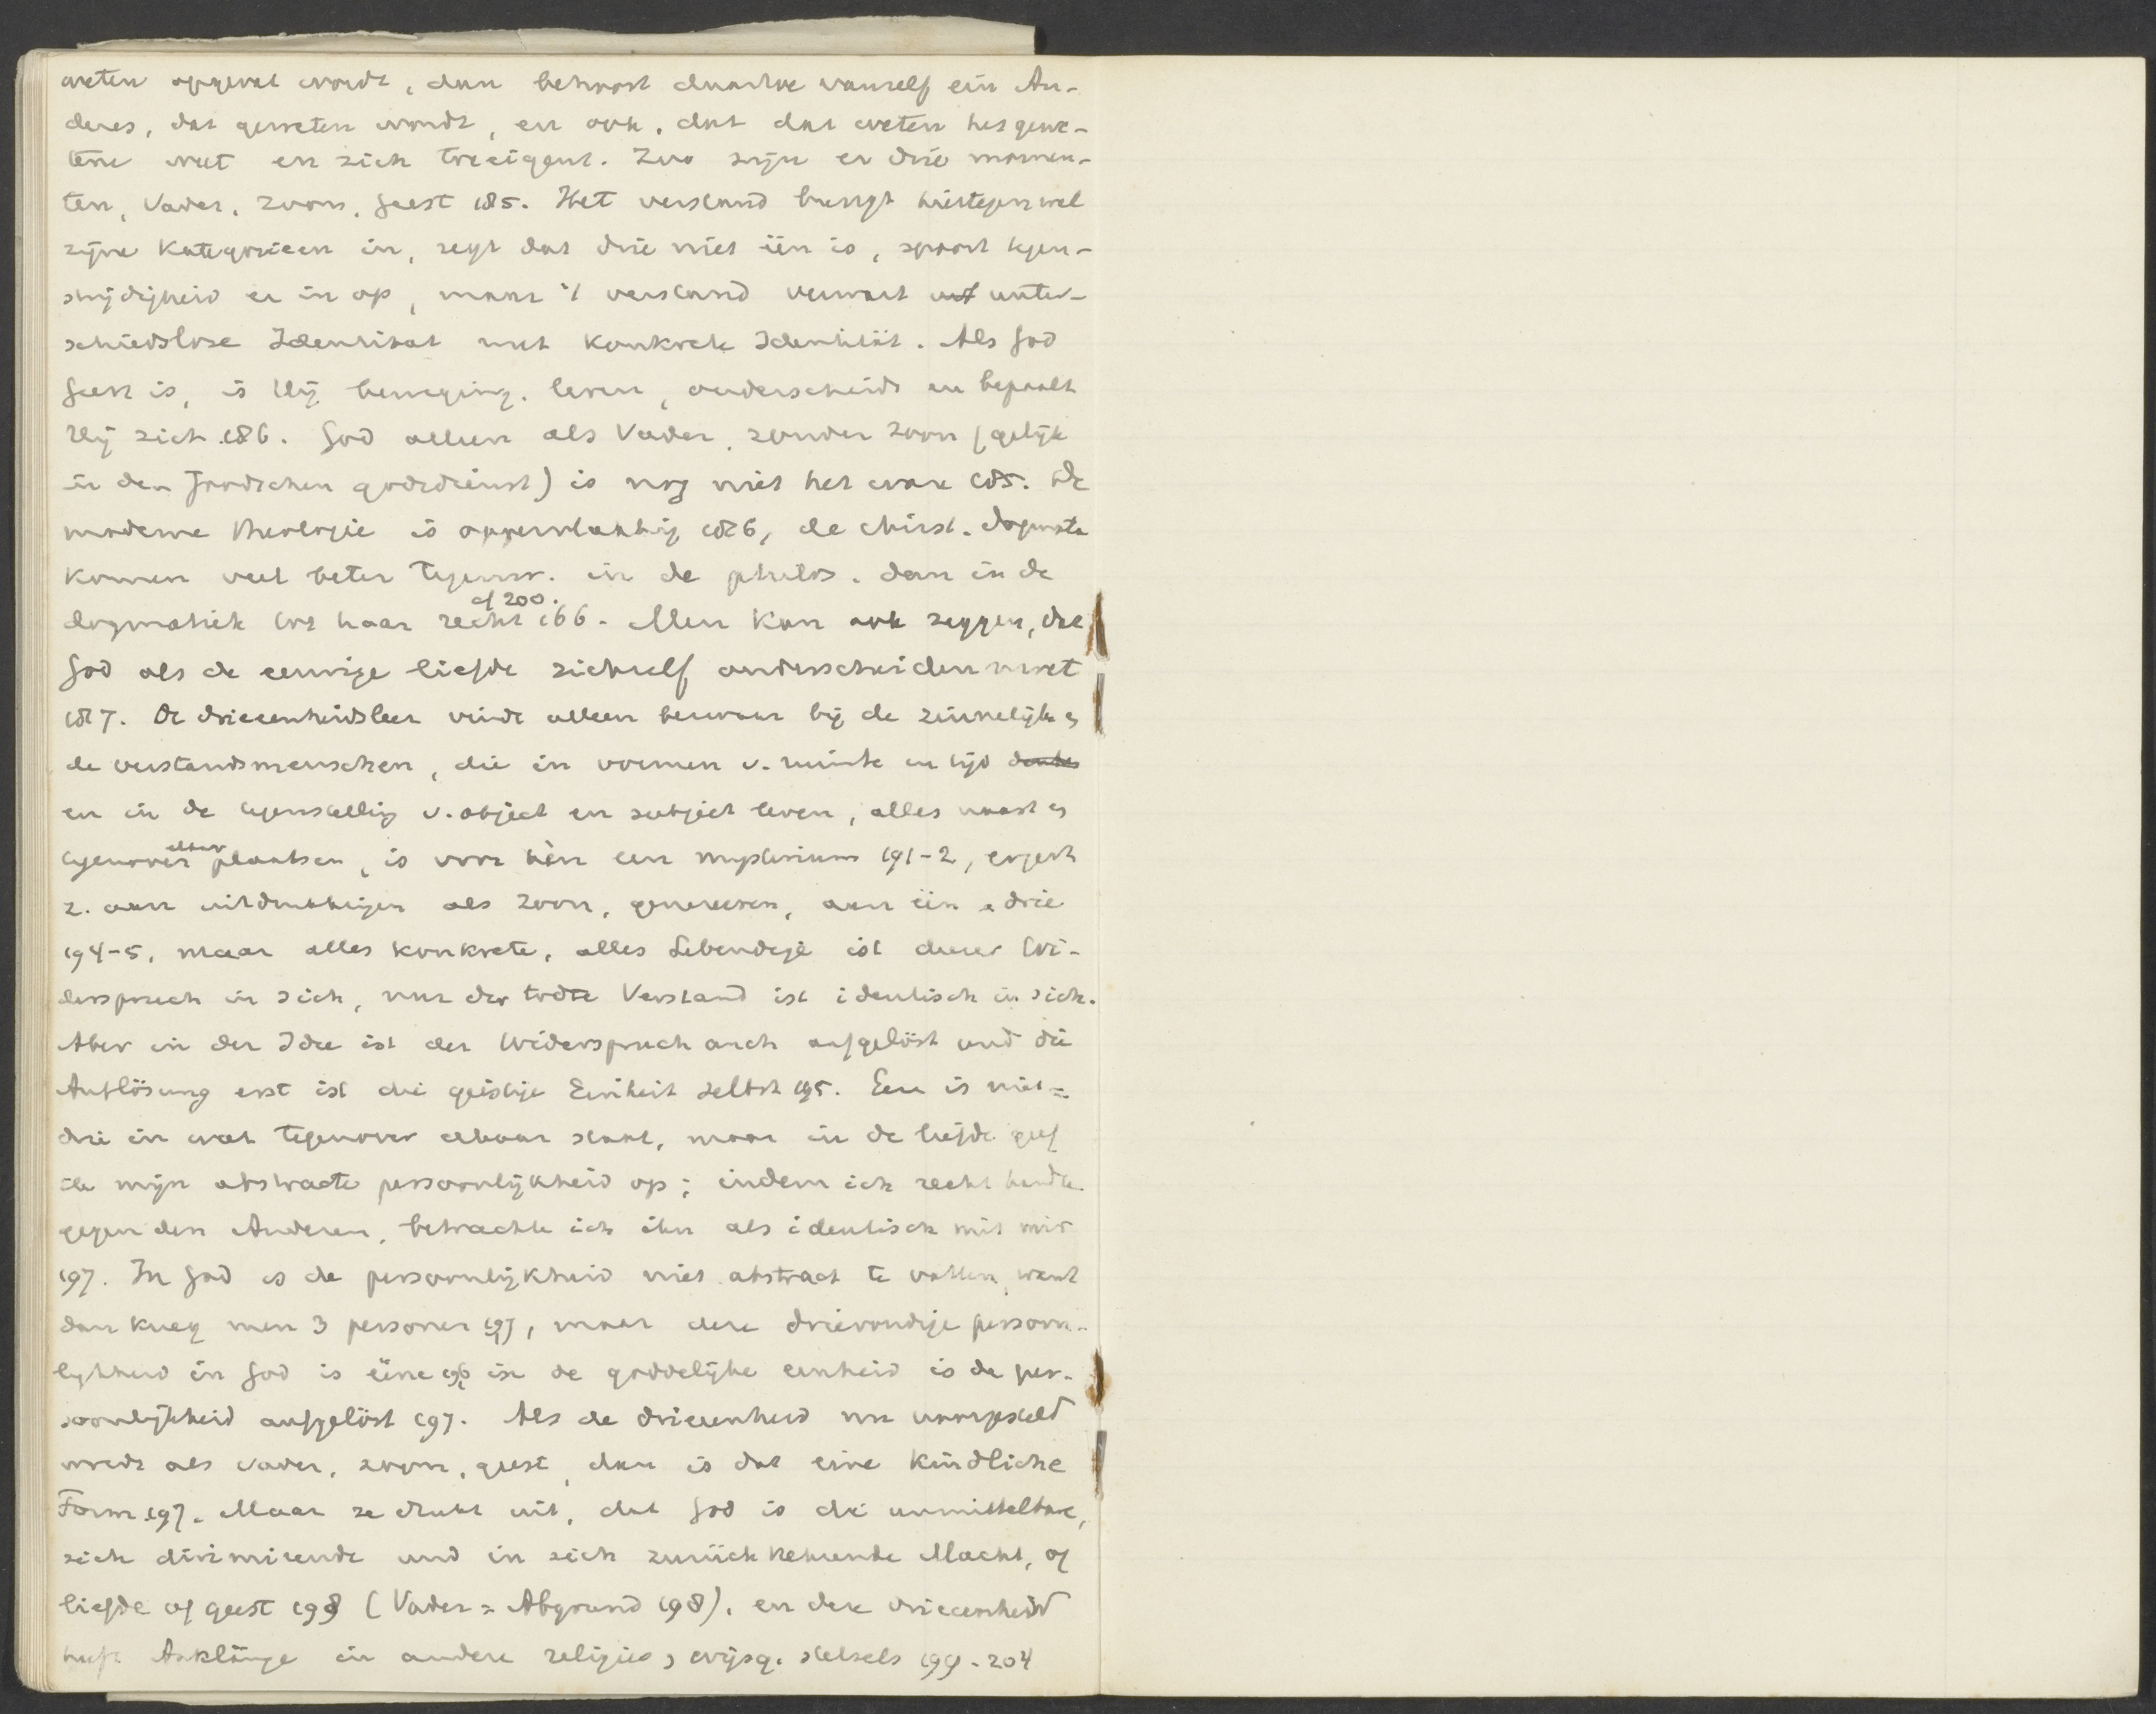 weten opgevat wordt, dan behoort daartoe vanzelf ein An-
deres, dat geweten wordt, en ook, dat dat weten het gewe-
tene weet en zich toeeigent. Zoo zijn er drie momen-
ten, Vader, Zoon, Geest 185. Het verstand brengt hiertegen wel
zijne Kategorieen in, zegt dat drie niet één is, spoort tegen-
strijdigheid er in op, maar 't verstand verwart unter-
schiedslose Identitat met konkrete Identität. Als God
Geest is, is Hij beweging, leven, onderscheidt en bepaalt
Hij zich 186. God alleen als Vader, zonder Zoon (gelijk
in den Joodschen godsdienst) is nog niet het ware 185. De
moderne theologie is oppervlakkig 186, de christ. dogmata
komen veel beter tegenw. in de philos. dan in de
cf 200.
dogmatiek tot haar recht 166. Men kan ook zeggen, dat
God als de eeuwige liefde zichzelf onderscheiden moet
187. De drieeenheidsleer vindt alleen bezwaar bij de zinnelijke en
de verstandsmenschen, die in vormen v. ruimte en tijd
en in de tegenstelling v. object en subject leven, alles naast en
tegenover elkaar plaatsen, is voor hèn een mysterium 191-2, ergert
z. aan uitdrukkingen als Zoon, genereeren, aan één en drie
194-5, maar alles konkrete, alles Lebendige ist dieser Wi-
derspruch in sich, nur der todte Verstand ist identisch in sich.
Aber in der Idee ist der Widerspruch auch aufgelöst und die
Auflösung erst ist die geistige Einheit selbst 195. Een is niet =
drie in wat tegenover elkaar staat, maar in de liefde geef
ik mijn abstracte persoonlijkheid op; indem ich recht handle
gegen den Anderen, betrachte ich ihn als identisch mit mir
197. In God is de persoonlijkheid niet abstract te vatten, want
dan kreeg men 3 personen 197, maar deze drievoudige persoon-
lijkheid in God is ééne 196 in de goddelijke eenheid is de per-
soonlijkheid aufgelöst 197. Als de drieeenheid nu voorgesteld
wordt als vader, zoon, geest, dan is dat eine kindliche
Form 197. Maar ze drukt uit, dat God is die unmittelbare,
sich dirimirende und in sich zurückkehrende Macht, of
liefde of geest 198 (Vader = Abgrund 198), en deze drieeenheid
heeft Anklänge in andere religies, wijsg. stelsels 199-204